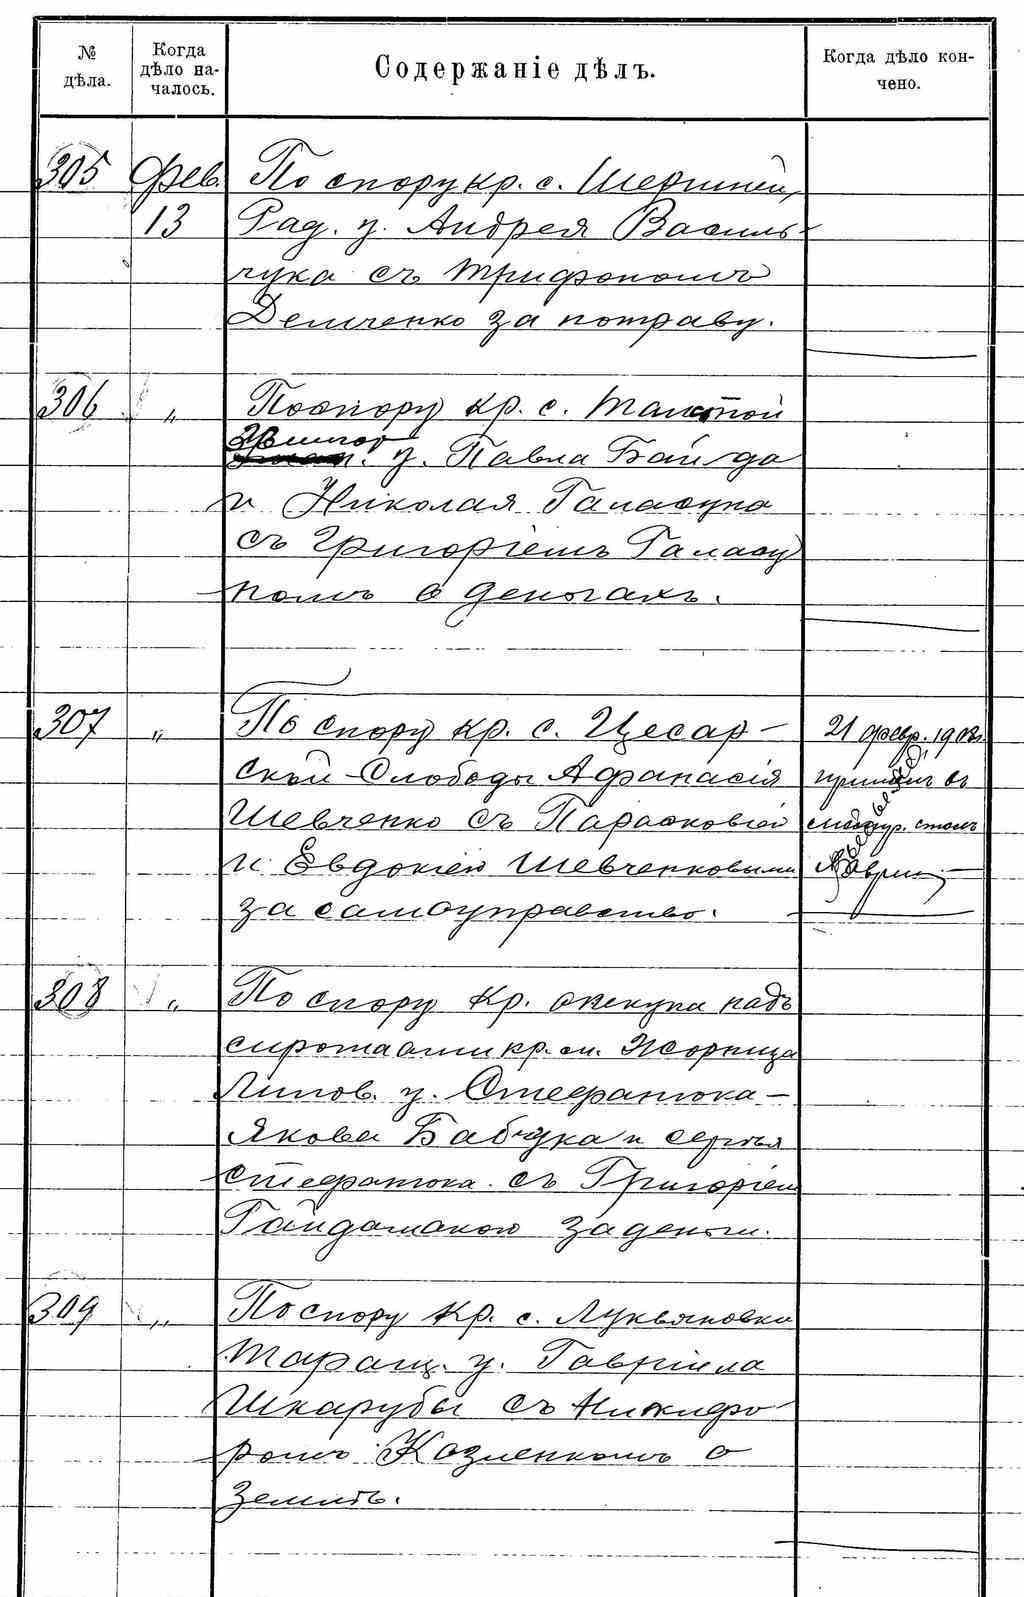 № дѣла.
Когда дѣло началось.
Содержаніе дѣлъ.
Когда дѣло кончено.
305 Фев. По спору кр. с. Шершней,
13 Рад. у. Андрея Василь-
чука съ Трифономъ
Демченко за потраву.
306 „ По спору кр. с. Толстой
Звиног. у. Павла Байда
и Николая Галасуна
съ Григоріемъ Галасу
номъ о деньгахъ.
307 „ По спору кр. с. Цесар- 21 февр. 1908 г.
ской-Слободы Афанасія въ
Шевченко съ Парасковіей столъ
и Евдокіею Шевченковыми
за самоуправство.
308 „ По спору кр. опекуна надъ
сиротами кр. м. Жорница
Липов. у. Стефанюка-
Якова Бабчука и Сергѣя
Стефанюка съ Григоріем
Гайдамакою за деньги.
309 „ По спору кр. с. Лукьяновки
Таращ. у. Гавріила
Шкарубы съ Никифо-
ромъ Козленкомъ о
землѣ.